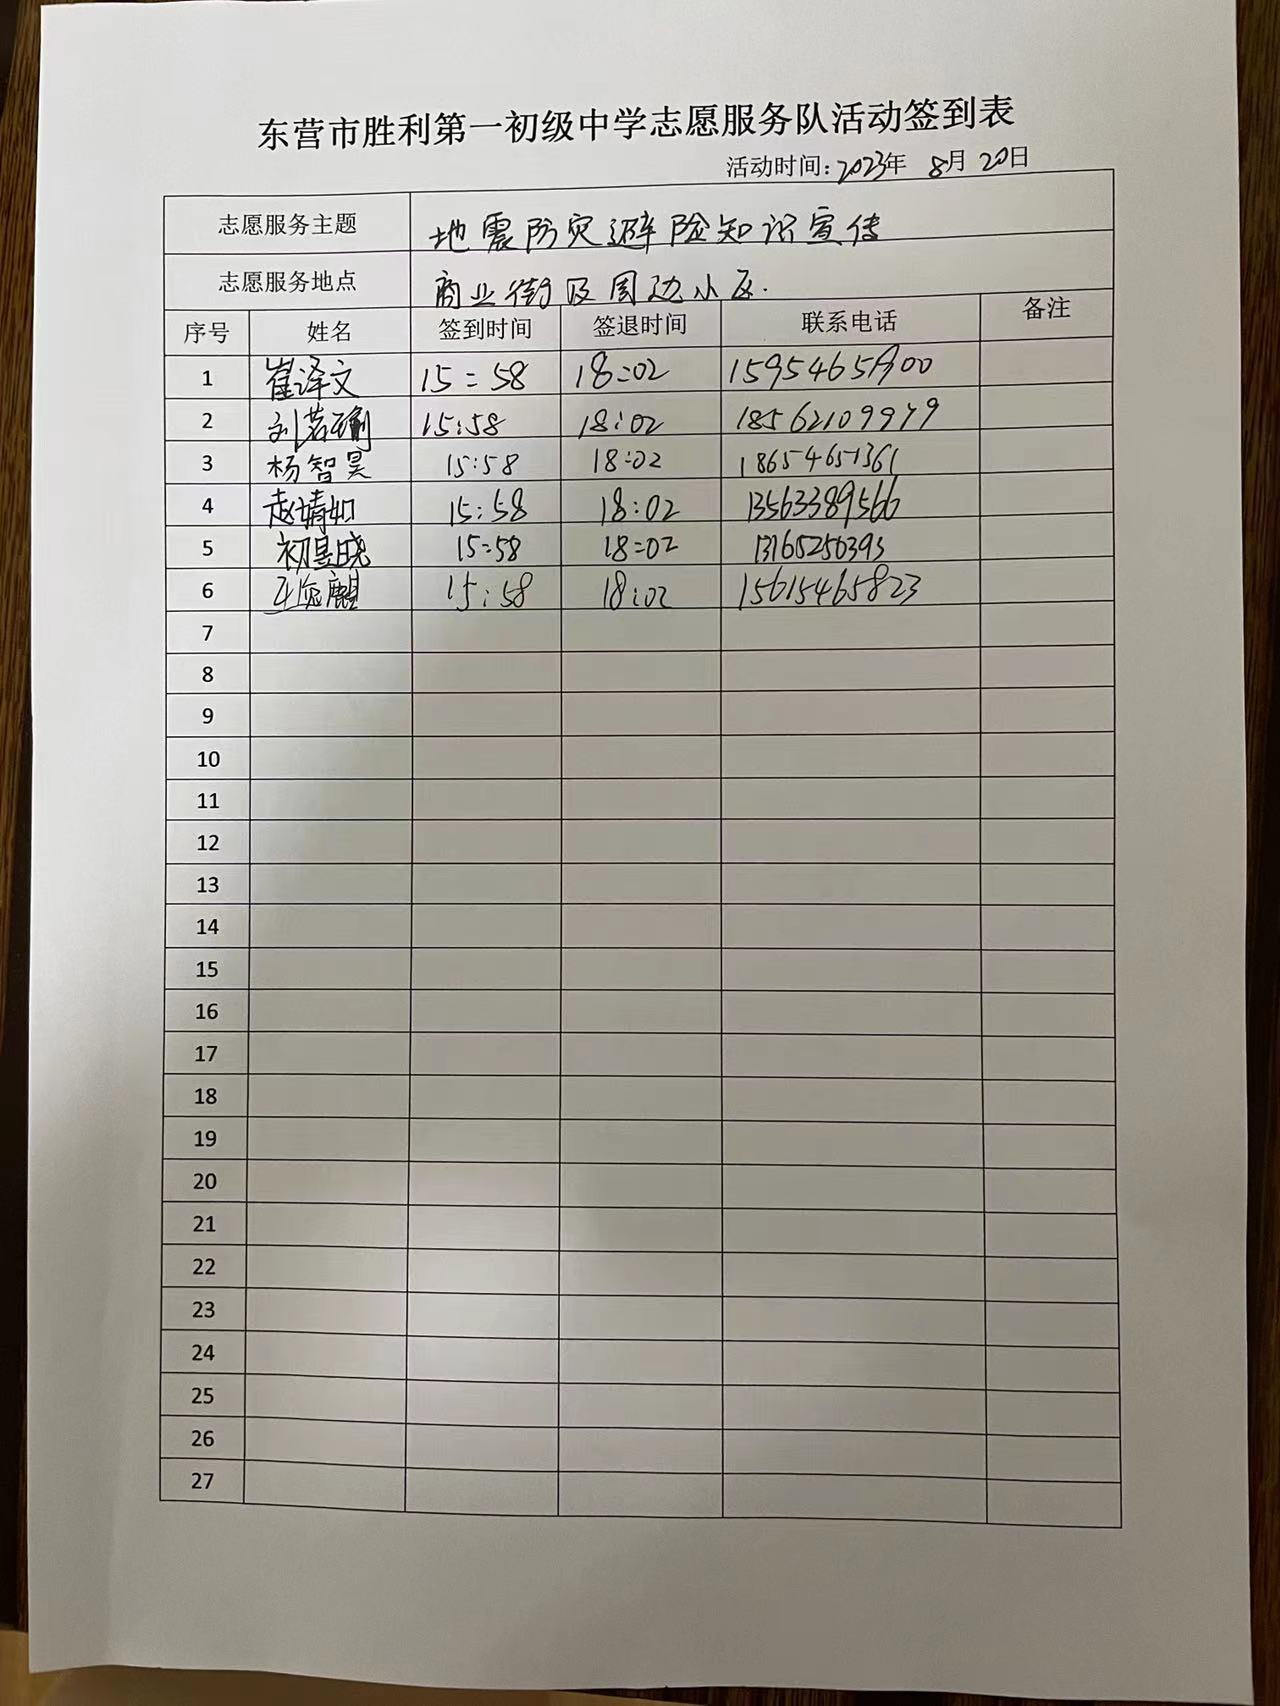 东营市胜利第一初级中学志愿服务队活动签到表
活动时间:2023年 8月 20日
志愿服务主题 地震防灾避险知识宣传
志愿服务地点 商业街及周边小区.
序号 姓名 签到时间 签退时间 联系电话 备注
1 崔泽文 15:58 18:02 15954651900
2 刘若瑜 15:58 18:02 18562109979
3 杨智昊 15:58 18:02 18654651361
4 赵婧如 15:58 18:02 13563389566
5 初昱晓 15:58 18:02 13165250393
6 15:58 18:02 15615465823
7
8
9
10
11
12
13
14
15
16
17
18
19
20
21
22
23
24
25
26
27